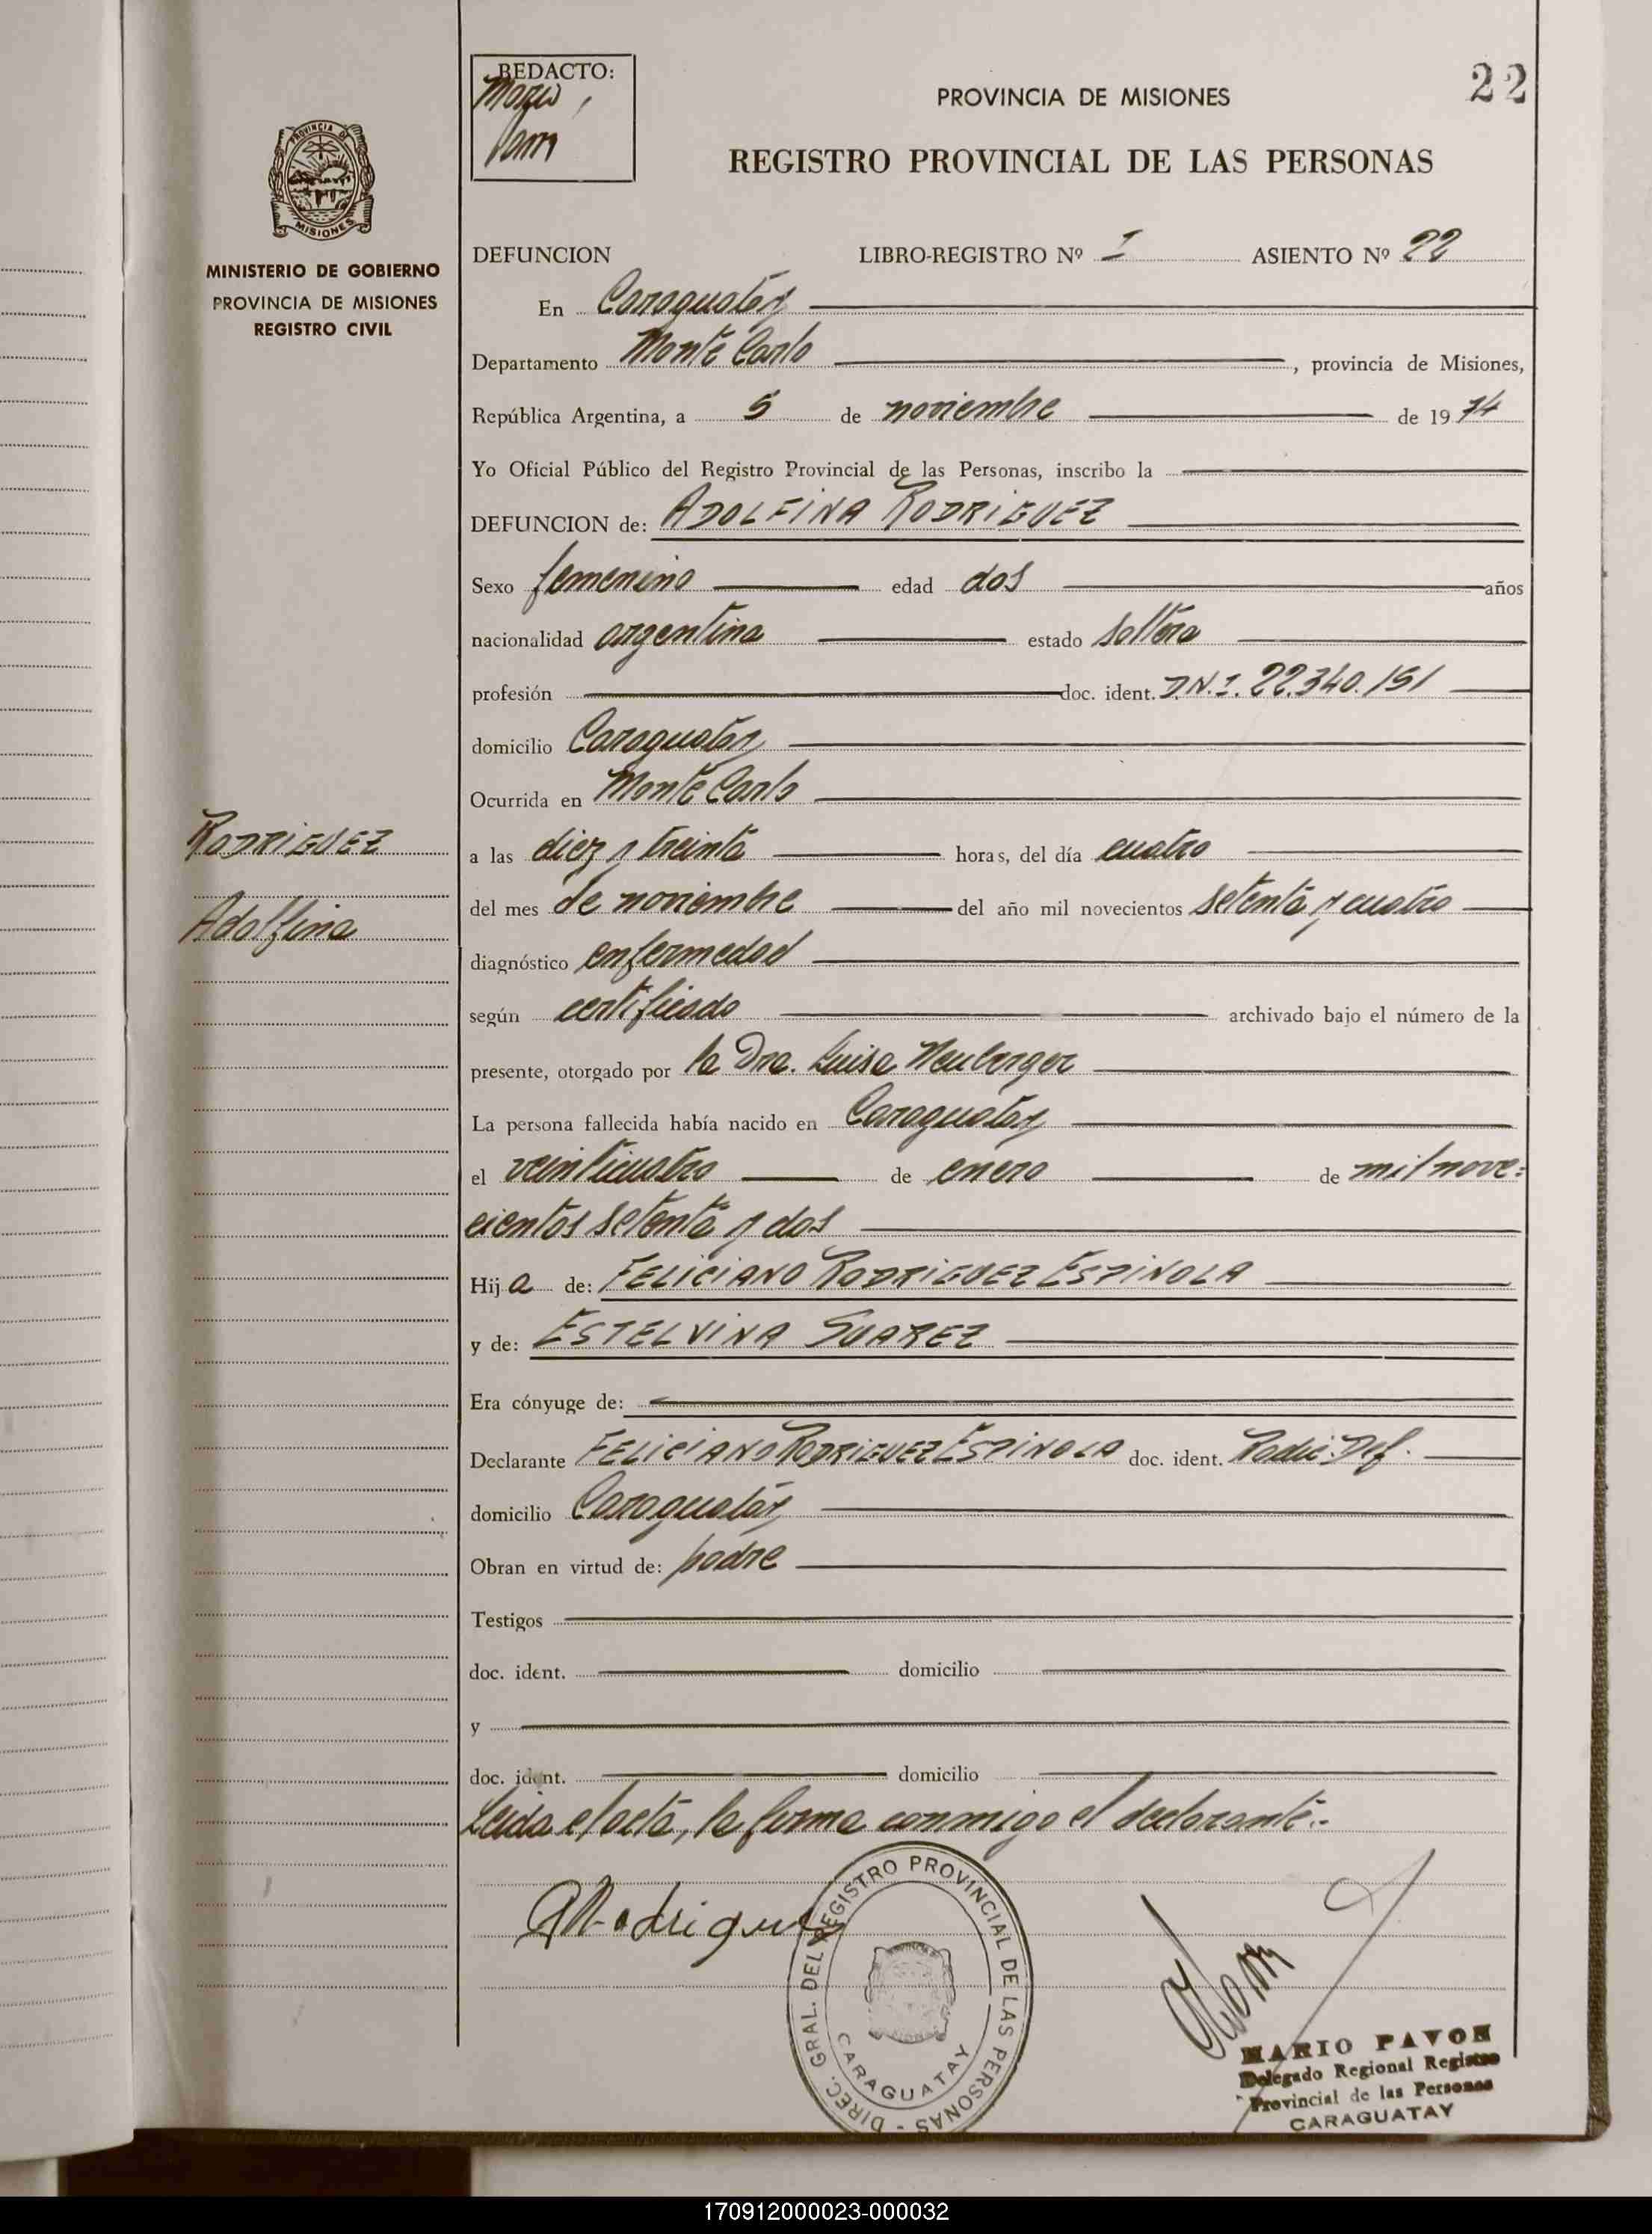 REDACTO:
Mario
Pavon
PROVINCIA DE MISIONES
22
REGISTRO PROVINCIAL DE LAS PERSONAS
PROVINCIA DE
MISIONES
MINISTERIO DE GOBIERNO
PROVINCIA DE MISIONES
REGISTRO CIVIL
DEFUNCION LIBRO-REGISTRO Nº I ASIENTO Nº 22
En Caraguatay
Departamento Monte Carlo, provincia de Misiones,
República Argentina, a 5 de noviembre de 1974
Yo Oficial Público del Registro Provincial de las Personas, inscribo la
DEFUNCION de: ADOLFINA RODRIGUEZ
Sexo femenino edad dos años
nacionalidad argentina estado soltera
profesión doc. ident. D.N.I. 22.340.151
domicilio Caraguatay
Ocurrida en Monte Carlo
RODRIGUEZ
a las diez y treinta horas, del día cuatro
Adolfina
del mes de noviembre del año mil novecientos setenta y cuatro
diagnóstico enfermedad
según certificado archivado bajo el número de la
presente, otorgado por la Dra. Luisa Neuberger
La persona fallecida había nacido en Caraguatay
el veinticuatro de enero de mil nove=
cientos setenta y dos
Hija de: FELICIANO RODRIGUEZ ESPINOLA
y de: ESTELVINA SUAREZ
Era cónyuge de:
Declarante FELICIANO RODRIGUEZ ESPINOLA doc. ident.
domicilio Caraguatay
Obran en virtud de: padre
Testigos
doc. ident. domicilio
y
doc. ident. domicilio
Leida el acta, la firma conmigo el declarante.-
Rodriguez
DIREC. GRAL. DEL REGISTRO PROVINCIAL DE LAS PERSONAS -
CARAGUATAY
MARIO PAVON
Delegado Regional Registro
Provincial de las Personas
CARAGUATAY
170912000023-000032